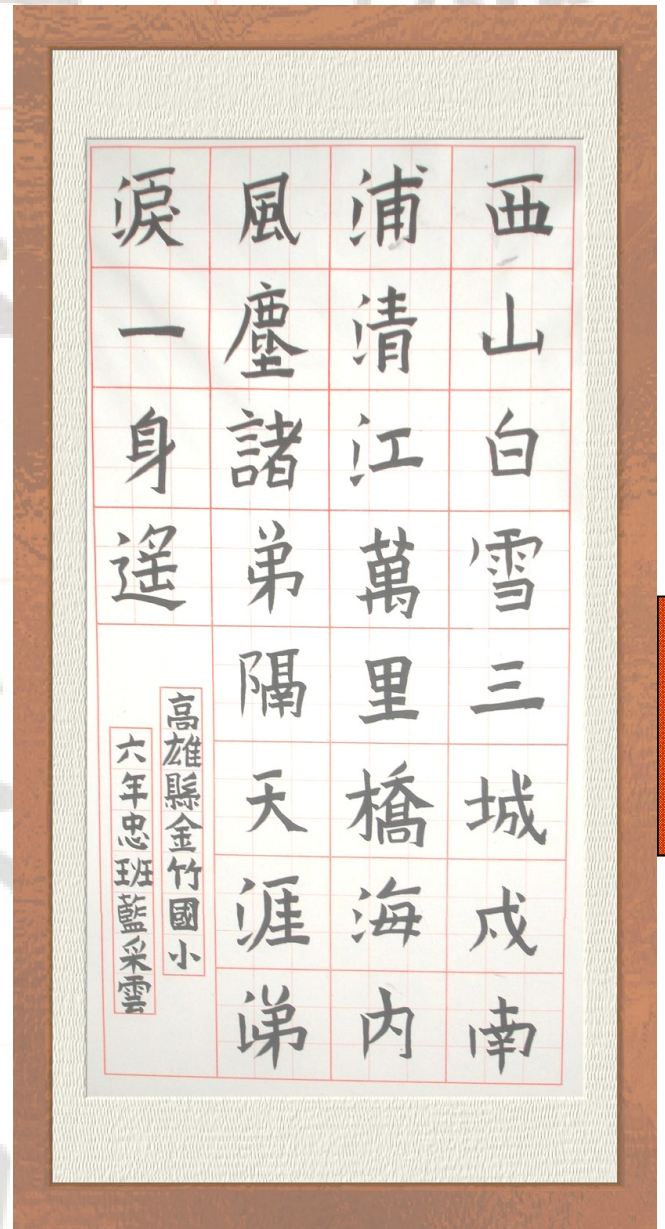 西山白雪三城戍南
浦清江萬里橋海內
風塵諸弟隔天涯涕
淚一身遙
高雄縣金竹國小
六年忠班藍采雲